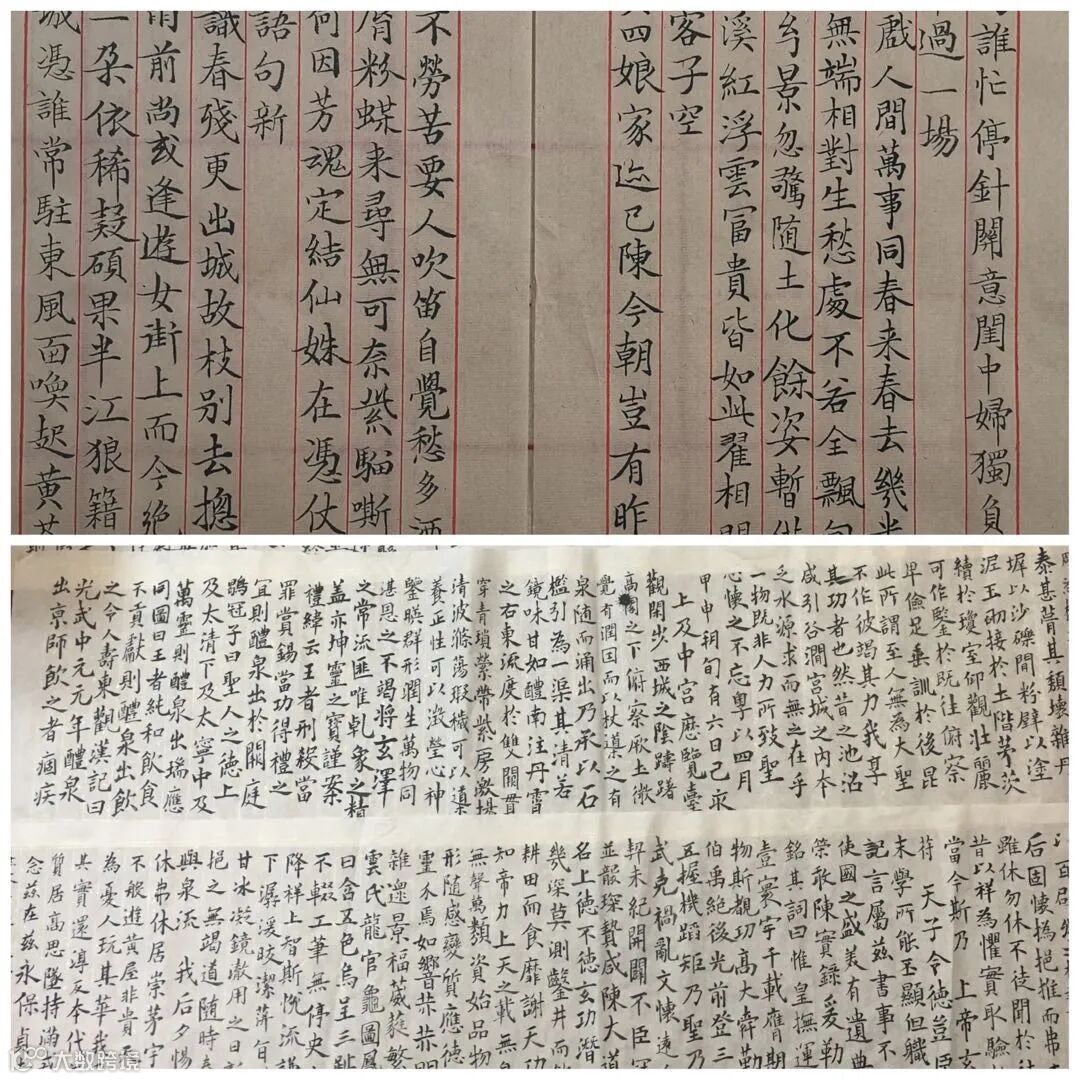 誰忙停針關意閨中婦獨負
過一場
戲人間萬事同春来春去幾
無端相對生愁處不若全飄
景忽驚随土化餘姿暫
溪紅浮雲冨貴皆如此翟相
客子空
四娘家迹已陳今朝豈有昨
不勞苦要人吹笛自覺愁多酒
粉蝶来尋無可奈紫騮嘶
何因芳魂定結仙姝在憑仗
語句新
識春殘更出城故枝别去揔
前尚或逢遊女街上而今绝
一朶依稀疑碩果半江狼籍
城憑誰常駐東風面喚起黄
泰甚葺其頹壞雜丹
墀以沙礫間粉壁以塗
泥玉砌接於土階茅茨
續於瓊室仰觀壯麗
可作鑒於既往俯察
卑儉足垂訓於後昆
此所謂至人無為大聖
不作彼竭其力我享
其功者也然昔之池沼
咸引谷澗宮城之内本
乏水源求而無之在乎
一物既非人力所致聖
心懷之不忘粵以四月
甲申朔旬有六日己亥
上及中宮歷覽臺
觀閑步西城之陰躊躇
高閣之下俯察厥土微
覺有潤因而以杖導之有
泉随而涌出乃承以石
檻引為一渠其清若
鏡味甘如醴南注丹霄
之右東流度於雙闕貫
穿青瑣縈帶紫房激揚
清波滌蕩瑕穢可以導
養正性可以澂瑩心神
鑒暎群形潤生萬物同
湛恩之不竭将玄澤
之常流匪唯乹象之精
盖亦坤靈之寶謹案
禮緯云王者刑殺當
罪賞錫當功得禮之
宜則醴泉出於闕庭
鶡冠子曰聖人之徳上
及太清下及太寧中及
萬靈則醴泉出瑞應
圖曰王者純和飲食
不貢獻則醴泉出飲
之令人壽東觀漢記曰
光武中元元年醴泉
出京師飲之者痼疾
后固懷撝挹推而弗
雖休勿休不徒聞於往
昔以祥為懼實取驗於
當今斯乃上帝玄
符天子令徳豈臣
末學所能丕顯但職
記言屬兹書事不
使國之盛美有遺典
策敢陳實録爰勒
銘其詞曰惟皇撫運
壹寰宇千載膺期
物斯覩功高大舜勤
伯禹絶後光前登三
五握機蹈矩乃聖乃
武克禍亂文懷遠
契未紀開闢不臣冠
並襲琛贄咸陳大道
名上徳不徳玄功潛
幾深莫測鑿井而飲
耕田而食靡謝天功
知帝力上天之載無
無聲萬類資始品物
形随感變質應徳
靈不焉如響赫赫明
雜遝景福葳蕤繁
雲氏龍官龜圖鳳
日含五色烏呈三趾
不輟工筆無停史
降祥上智斯悅流謙
下潺湲皎潔蓱旨
甘氷凝鏡澈用之日
挹之無竭道随時
與泉流我后夕惕
休弗休居崇茅宇
不般遊黄屋非貴天
為憂人玩其華我
其實還淳反本代
質居高思墜持滿
念兹在兹永保貞